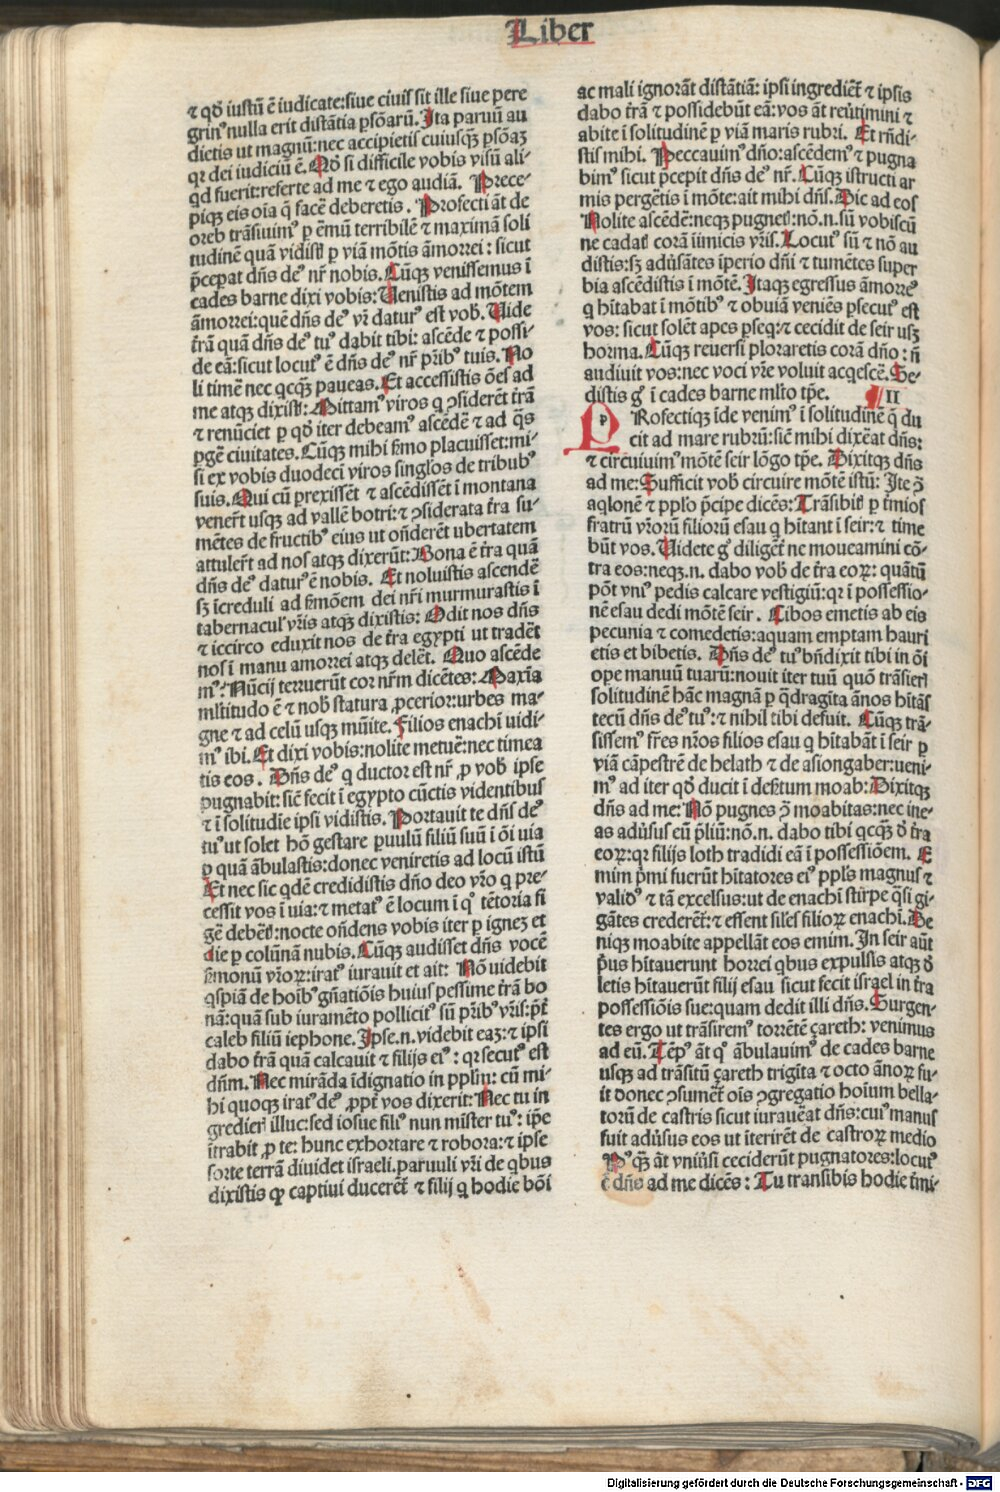 Liber
⁊ qd̄ iustū ē iudicate:siue ciuis sit ille siue pere
grinꝰ nulla erit distātia ꝑsōarū. Ita paruū au
dietis ut magnū:nec accipietis cuiusqꝫ ꝑsōaꝫ
qꝛ dei iudiciū ē. Qd̄ si difficile vobis visū ali-
qd fuerit:referte ad me ⁊ ego audiā. Prece-
piqꝫ eis oīa q̄ facē deberetis. Profecti āt de
oreb trāsiuimꝰ ꝑ ēmū terribilē ⁊ maximā soli
tudinē quā vidistꝭ ꝑ viā mōtis āmorrei: sicut
p̄cepat dn̄s deꝰ nr̄ nobis. Cūqꝫ venissemus ī
cades barne dixi vobis: Uenistis ad mōtem
āmorrei:quē dn̄s deꝰ vr̄ daturꝰ est vob. Uide
t̄rā quā dn̄s deꝰ tuꝰ dabit tibi: ascēde ⁊ possi-
de eā:sicut locutꝰ ē dn̄s deꝰ nr̄ pr̄ibꝰ tuis. No
li timē nec qcqꝫ paueas. Et accessistis ōes ad
me atqꝫ dixistꝭ: Mittamꝰ viros q ꝯsiderēt t̄rā
⁊ renūciet ꝑ qd̄ iter debeamꝰ ascēdē ⁊ ad q̄s
ꝑgē ciuitates. Cūqꝫ mihi s̄mo placuisset:mi-
si ex vobis duodecī viros singl̄os de tribubꝰ
suis. Qui cū ꝑrexissēt ⁊ ascēdissēt ī montana
venert̄ usqꝫ ad vallē botri: ⁊ ꝯsiderata t̄ra su-
mētes de fructibꝰ eius ut on̄derēt ubertatem
attulert̄ ad nos atqꝫ dixerūt: Bona ē t̄ra quā
dn̄s deꝰ daturꝰ ē nobis. Et noluistis ascendē
sꝫ īcreduli ad s̄mōem dei nr̄i murmurastis ī
tabernacul' vr̄is atqꝫ dixistis: Odit nos dn̄s
⁊ iccirco eduxit nos de t̄ra egypti ut tradēt
nos ī manu amorrei atqꝫ delēt. Quo ascēde
mꝰ: Nūcij terruerūt cor nr̄m dicētes: Maxīa
ml̄titudo ē ⁊ nob̄ statura ꝓcerior:urbes ma-
gne ⁊ ad celū usqꝫ mūite. Filios enachi uidi-
mꝰ ibi. Et dixi vobis:nolite metuē:nec timea
tis eos. Dn̄s deꝰ q ductor est nr̄ ꝓ vob ipse
pugnabit:sic̄ fecit ī egypto cūctis videntibus
⁊ ī solitudīe ipsi vidistis. Portauit te dn̄s deꝰ
tuꝰ ut solet hō gestare ꝑuulū filiū suū ī ōi uia
ꝑ quā ābulastis:donec veniretis ad locū istū
Et nec sic qdē credidistis dn̄o deo vr̄o q pre-
cessit vos ī uia:⁊ metatꝰ ē locum ī qꝰ tētoria fi
gē debētꝭ:nocte on̄dens vobis iter ꝑ ignez et
die ꝑ colūnā nubis. Cūqꝫ audisset dn̄s vocē
s̄monū vr̄oꝝ:iratꝰ iurauit et ait: Nō videbit
qspiā de hoīb' gn̄atiōis huiuſ pessime t̄rā bo
nā:quā sub iuramēto pollicitꝰ sū pr̄ibꝰ vr̄is:p̄t
caleb filiū iephone. Ipse.n.videbit eaꝫ:⁊ ipsi
dabo t̄rā quā calcauit ⁊ filijs eiꝰ: qꝛ secutꝰ est
dn̄m. Nec mirāda īdignatio in ppl̄m: cū mi-
hi quoqꝫ iratꝰ deꝰ ꝓpt̄ vos dixerit: Nec tu in
gredierꝭ illuc:sed iosue filiꝰ nun mīster tuꝰ: ip̄e
ītrabit ꝓ te: hunc exhortare ⁊ robora:⁊ ipse
sorte terrā diuidet israeli.paruuli vr̄i de qbus
dixistis qꝙ captiui ducerēt̄ ⁊ filij q hodie bōi
ac mali ignorāt distātiā: ipsi ingrediēt̄ ⁊ ipsis
dabo t̄rā ⁊ possidebūt eā:vos āt reūtimini ⁊
abite ī solitudinē ꝑ viā maris rubri. Et rn̄di-
stis mihi. Peccauimꝰ dn̄o:ascēdemꝰ ⁊ pugna
bimꝰ sicut p̄cepit dn̄s deꝰ nr̄. Cūqꝫ istructi ar
mis pergētis ī mōte:ait mihi dn̄s. Dic ad eos
Nolite ascēdē:neqꝫ pugnetꝭ:nō.n.sū vobiscū
ne cadatꝭ corā īimicis vr̄is. Locutꝰ sū ⁊ nō au
distis:sꝫ adūsātes īperio dn̄i ⁊ tumētes super
bia ascēdistis ī mōtē. Itaqꝫ egressus āmorreꝰ
q hītabat ī mōtibꝰ ⁊ obuiā veniēs ꝑsecutꝰ est
vos: sicut solēt apes ꝑseq:⁊ cecidit de seir usqꝫ
horma. Cūqꝫ reuersi ploraretis corā dn̄o: n̄
audiuit vos:nec voci vr̄e voluit acqescē. Se-
distis gͦ ī cades barne ml̄to tp̄e. II
PRofectiqꝫ īde venimꝰ ī solitudinē q̄ du
cit ad mare rubrū:sic̄ mihi dixēat dn̄s:
⁊ circuiuimꝰ mōtē seir lōgo tp̄e. Dixitqꝫ dn̄s
ad me: Sufficit vob circuire mōtē istū: Ite ꝯ̄
aqlonē ⁊ ppl̄o p̄cipe dicēs: Trāsibitꝭ ꝑ t̄mios
fratrū vr̄orū filiorū esau q hītant ī seir:⁊ time
būt vos. Uidete gͦ diligēt̄ ne moueamini cō-
tra eos:neqꝫ.n. dabo vob de t̄ra eoꝝ: quātū
pōt vniꝰ pedis calcare vestigiū:qꝛ ī possessio-
nē esau dedi mōtē seir. Cibos emetis ab eis
pecunia ⁊ comedetis:aquam emptam hauri
etis et bibetis. Dn̄s deꝰ tuꝰ bn̄dixit tibi in ōi
ope manuū tuarū:nouit iter tuū quō trāsierꝭ
solitudinē hāc magnā ꝑ qdragīta ānos hītās
tecū dn̄s deꝰ tuꝰ:⁊ nihil tibi defuit. Cūqꝫ trā-
sissemꝰ fr̄es nr̄os filios esau q hītabāt ī seir ꝑ
viā cāpestrē de helath ⁊ de asiongaber:ueni-
mꝰ ad iter qd̄ ducit ī des̄tum moab: Dixitqꝫ
dn̄s ad me: Nō pugnes ꝯ̄ moabitas:nec ine-
as adūsus eū p̄liū:nō.n. dabo tibi qcqꝫ d̄ t̄ra
eoꝝ:qꝛ filijs loth tradidi eā ī possessiōem. E
mim p̄mi fuerūt hītatores eiꝰ ppl̄s magnuſ ⁊
validꝰ ⁊ tā excelsus:ut de enachī stirpe q̄si gi-
gātes crederēt̄:⁊ essent sil̄es filioꝝ enachī. De
niqꝫ moabite appellāt eos emim. In seir aūt
p̄us hītauerunt horrei qbus expulsis atqꝫ d̄
letis hītauerūt filij esau sicut fecit israel in t̄ra
possessiōis sue:quam dedit illi dn̄s. Surgen-
tes ergo ut trāsiremꝰ torrētē çareth: venimus
ad eū. Tēpꝰ āt qꝰ ābulauimꝰ de cades barne
usqꝫ ad trāsitū çareth trigīta ⁊ octo ānoꝝ fu-
it donec ꝯsumēt̄ ois ꝯgregatio hoīum bella-
torū de castris sicut iurauēat dn̄s:cuiꝰ manus
fuit adūsus eos ut īterirēt de castroꝝ medio
Pꝰ qꝫ āt vniūsi ceciderūt pugnatores:locutꝰ
ē dn̄s ad me dicēs: Tu transibis hodie t̄mi-
Digitalisierung gefördert durch die Deutsche Forschungsgemeinschaft - DFG